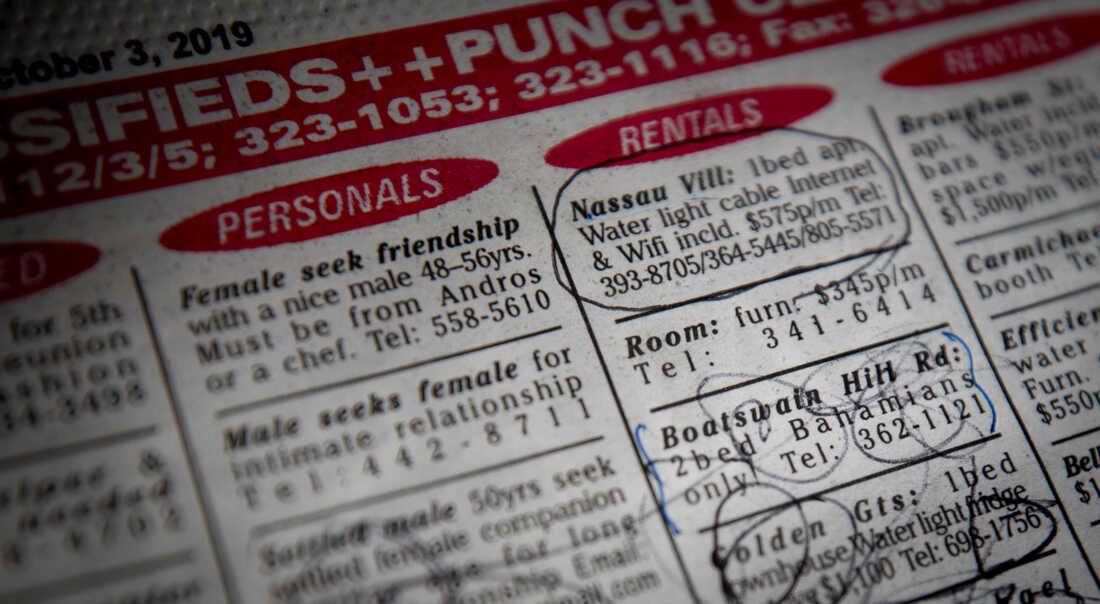 ctober 3, 2019
SSIFIEDS++PUNCH
112/3/5; 323-1053; 323-1116; Fax:
ED
for 5th
PERSONALS
Female seek friendship
with a nice male 48–56yrs.
Must be from Andros
or a chef. Tel: 558-5610
Male seeks female for
intimate relationship
Tel: 442-8711
male 50yrs seek
female companion
for long
Email:
RENTALS
Nassau Vill: 1bed apt
Water light cable Internet
& Wifi incld. $575p/m Tel:
393-8705/364-5445/805-5571
Room: furn: $345p/m
Tel: 341-6414
Boatswain Hill Rd:
2bed Bahamians
only Tel: 362-1121
Golden Gts: 1bed
townhouse Water light fridge
$1,100 Tel: 698-1756
RENTALS
Brougham St:
apt. Water incl
bars $550p/m
space w/equ
$1,500p/m Tel
Carmichae
booth Te
Efficien
water
Furn.
$550p
Bel
$1